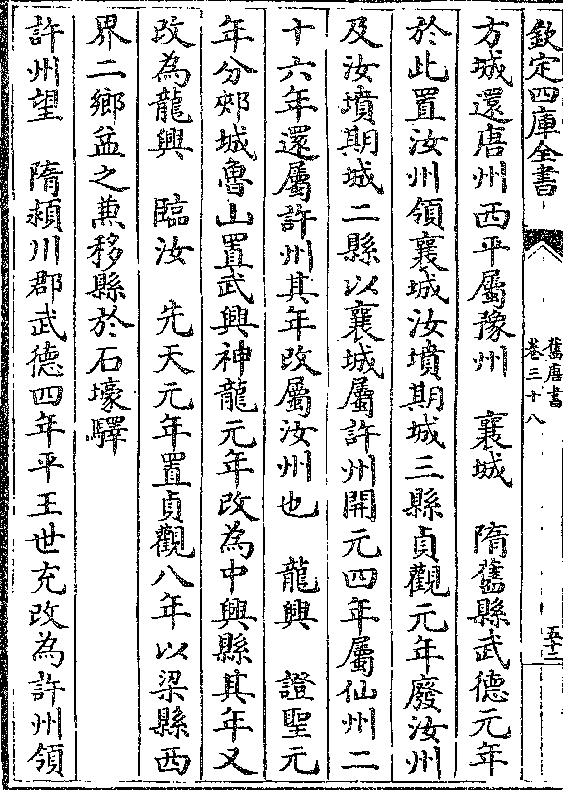 欽定四庫全書
舊唐書
卷三十八
五十二
方城還唐州西平屬豫州　襄城　隋舊縣武德元年
於此置汝州領襄城汝墳期城三縣貞觀元年廢汝州
及汝墳期城二縣以襄城屬許州開元四年屬仙州二
十六年還屬許州其年改屬汝州也　龍興　證聖元
年分郟城魯山置武興神龍元年改為中興縣其年又
改為龍興　臨汝　先天元年置貞觀八年以梁縣西
界二鄉益之兼移縣於石壕驛
許州望　隋潁川郡武德四年平王世充改為許州領